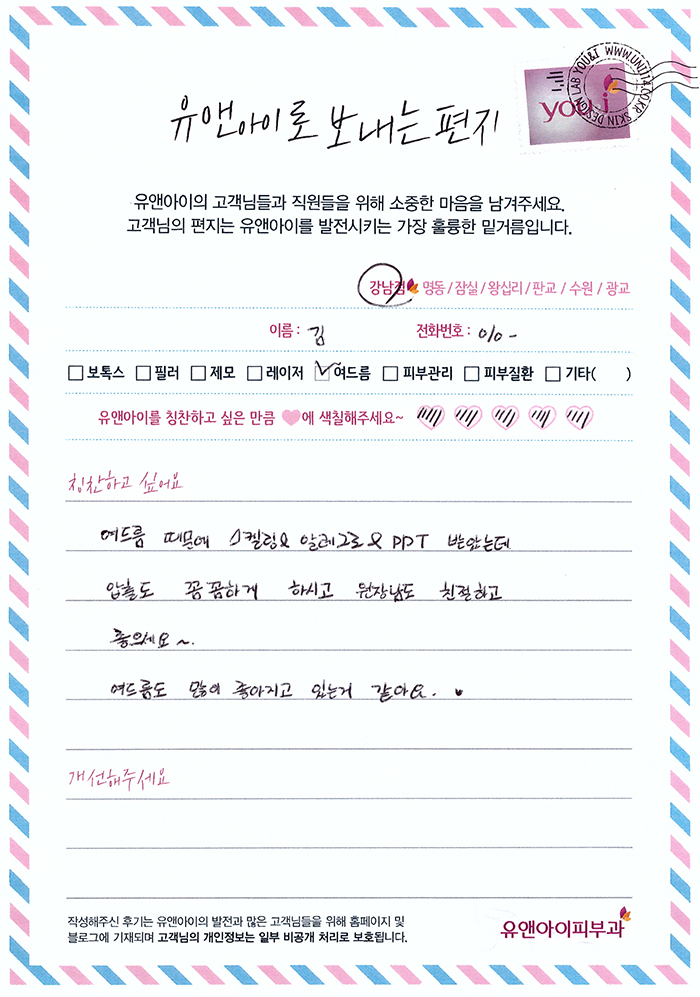 SKIN DESIGN LAB YOU&I WWW.UNI114.CO.KR
you&i
유앤아이로 보내는 편지
유앤아이의 고객님들과 직원들을 위해 소중한 마음을 남겨주세요.
고객님의 편지는 유앤아이를 발전시키는 가장 훌륭한 밑거름입니다.
강남점 명동 / 잠실 / 왕십리 / 판교 / 수원 / 광교
이름 : 김 전화번호 : 010 -
보톡스 필러 제모 레이저 여드름 피부관리 피부질환 기타( )
유앤아이를 칭찬하고 싶은 만큼 에 색칠해주세요~
칭찬하고 싶어요
여드름 때문에 스켈링& 알레그로& PPT 받았는데
압출도 꼼꼼하게 하시고 원장님도 친절하고
좋으세요~.
여드름도 많이 좋아지고 있는거 같아요.
개선해주세요
작성해주신 후기는 유앤아이의 발전과 많은 고객님들을 위해 홈페이지 및
블로그에 기재되며 고객님의 개인정보는 일부 비공개 처리로 보호됩니다.
유앤아이피부과